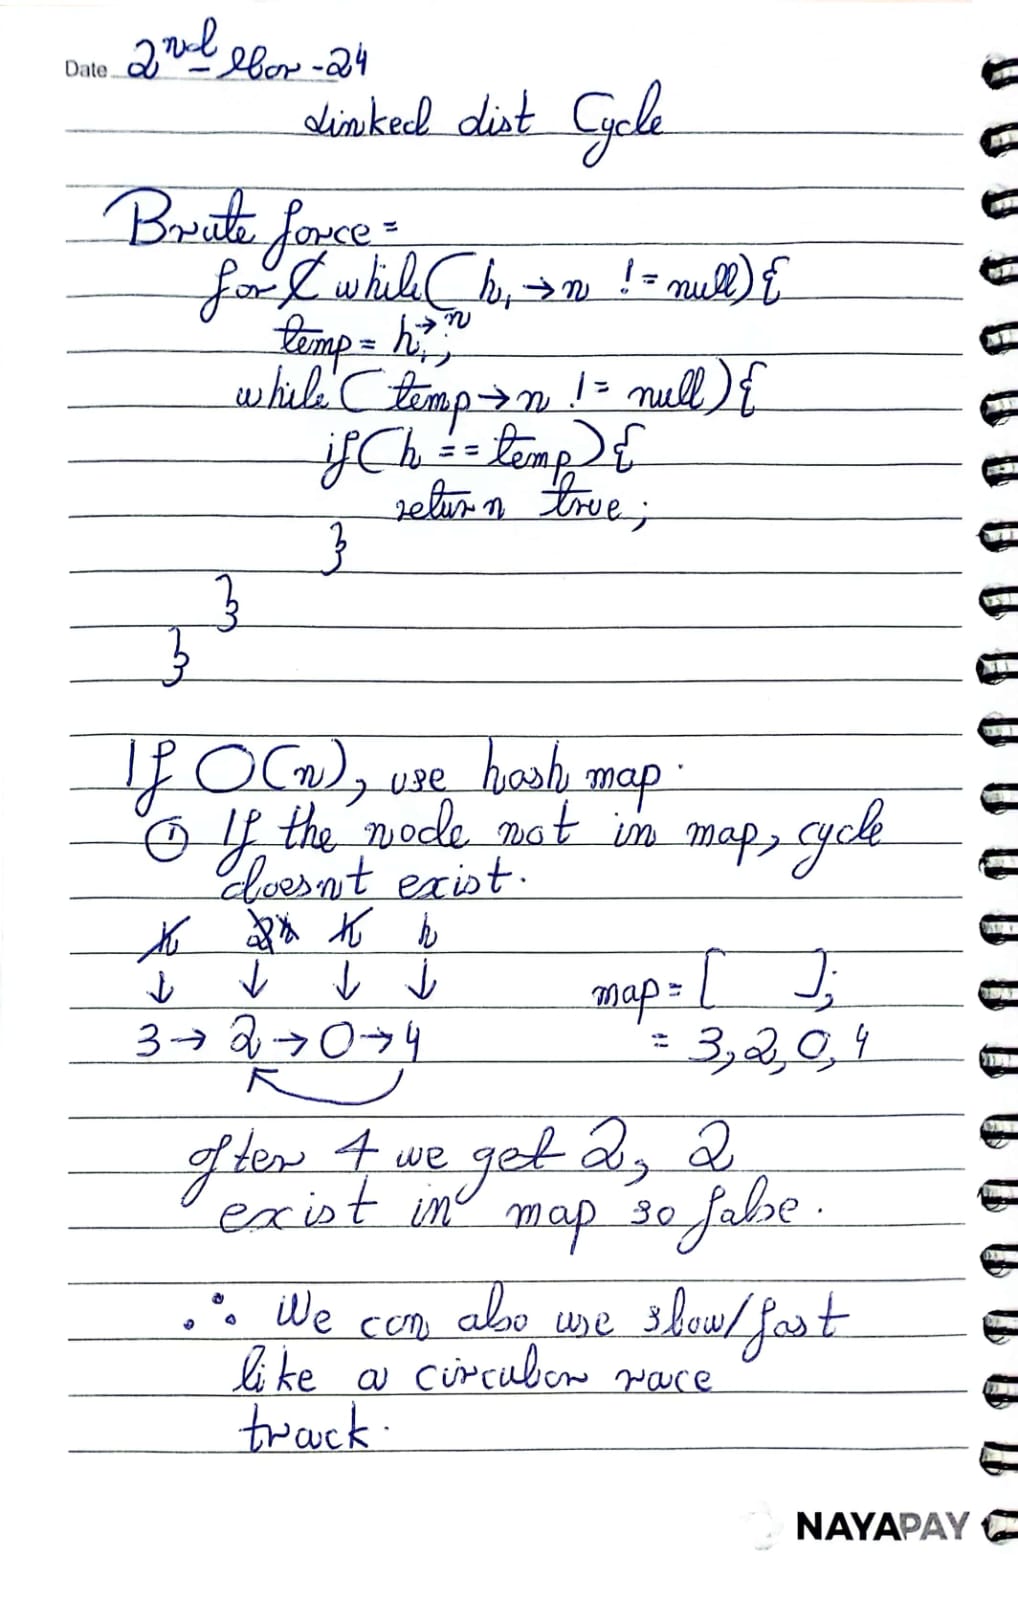 Date 2nd Mar-24
Linked List Cycle
Brute force =
for while(h₁→n != null){
temp = h₁→n;
while(temp→n != null){
if(h == temp){
return true;
}
}
}
If O(n), use hash map.
① If the node not in map, cycle
doesnt exist.
h h h
↓ ↓ ↓ ↓ map = [ ];
3→2→0→4 = 3,2,0,4
after 4 we get 2, 2
exist in map so false.
∴ We can also use slow/fast
like a circular race
track.
NAYAPAY